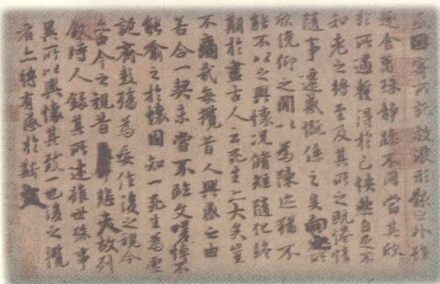 因寄所託放浪形骸之外雖
趣舍萬殊靜躁不同當其欣
於所遇暫得於己快然自足不
知老之將至及其所之既惓情
隨事遷感慨係之矣向之所
欣俛仰之閒以為陳迹猶不
能不以之興懷況脩短隨化終
期於盡古人云死生亦大矣豈
不痛哉每攬昔人興感之由
若合一契未嘗不臨文嗟悼不
能喻之於懷固知一死生為虛
誕齊彭殤為妄作後之視今
亦由今之視昔悲夫故列
敘時人錄其所述雖世殊事
異所以興懷其致一也後之攬
者亦將有感於斯文